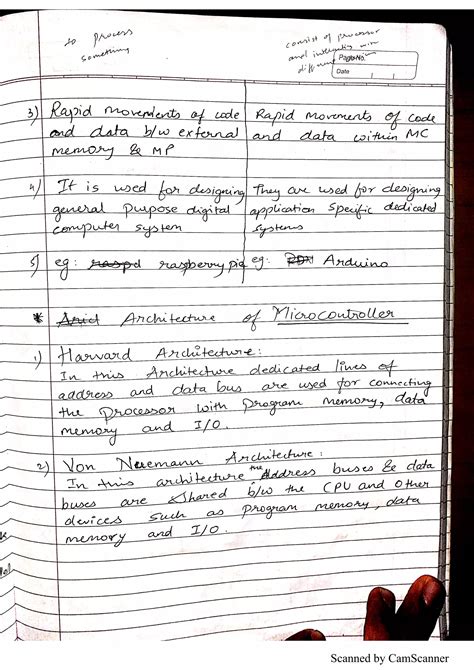 to process
something
consist of processor
and interacts with
different
Page No.
Date
3) Rapid movements of code
and data b/w external
memory & MP
Rapid movements of code
and data within MC
4) It is used for designing
general purpose digital
computer system
They are used for designing
application specific dedicated
systems
5) eg: raspberry pi
eg: Arduino
* Architecture of Microcontroller
1) Harvard Architecture:
In this Architecture dedicated lines of
address and data bus are used for connecting
the Processor with Program memory, data
memory and I/O.
2) Von Neuemann Architecture:
In this architecture the Address buses & data
buses are shared b/w the CPU and other
devices such as program memory, data
memory and I/O.
Scanned by CamScanner